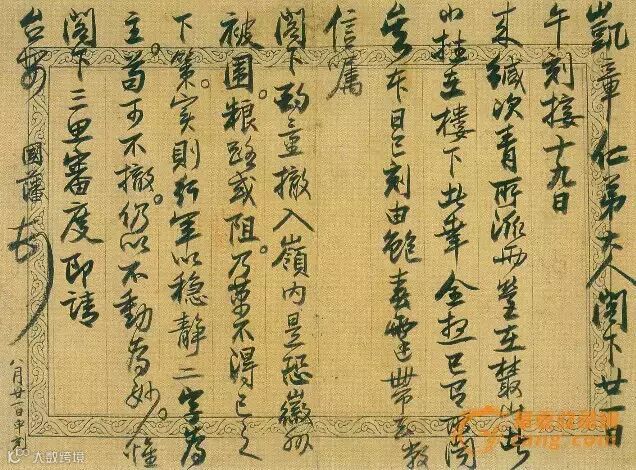 凱章仁弟大人閣下廿一日
午刻接十九日
來緘次青所派兩營在叢山
小挫在樓下幸全想已有聞
本日巳刻由鮑春霆帶去數
信囑
閣下酌量撤入嶺內是恐徽州
被圍。糧路或阻。乃萬不得已之
下策。實則行軍以穩靜二字為
主。苟可不撤。仍以不動為妙。惟
閣下三思審度即請
台安 國藩
八月廿一日申刻
大数跨境